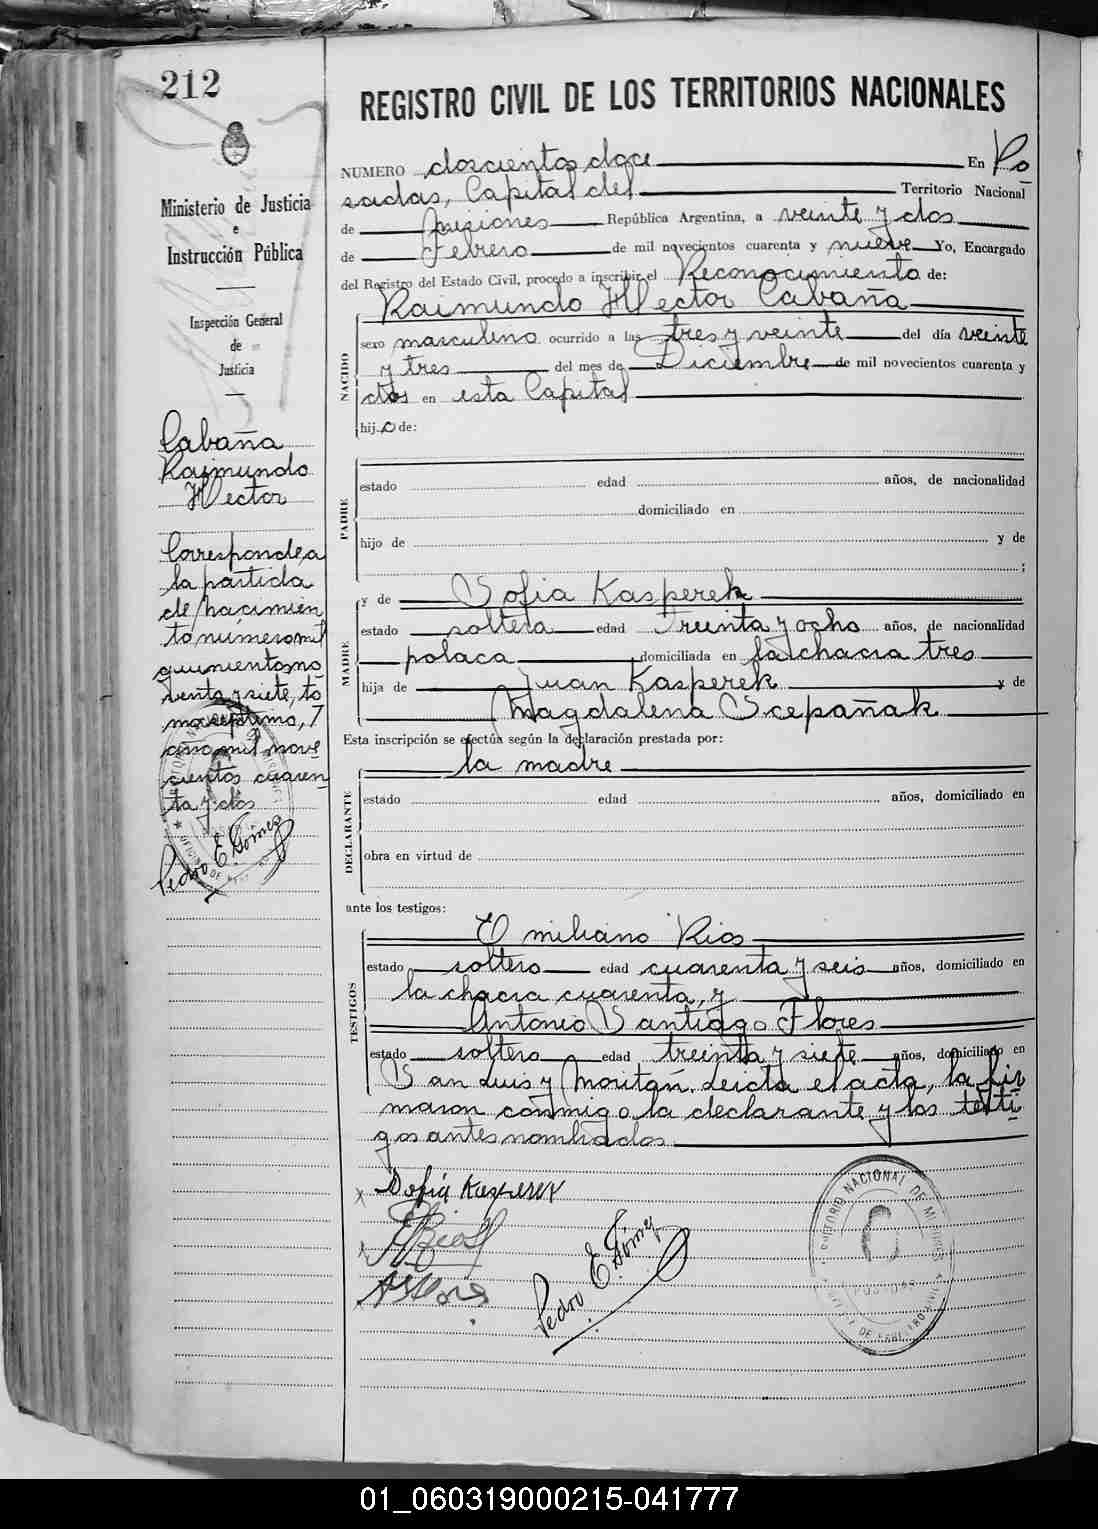 212
REGISTRO CIVIL DE LOS TERRITORIOS NACIONALES
Ministerio de Justicia
e
Instrucción Pública
Inspección General
de
Justicia
Cabaña
Raimundo
Hector
Corresponde a
la partida
de nacimien
to número mil
quinientos no
venta y siete, to
mo septimo, 7
año mil nove
cientos cuaren
ta y dos
Pedro E. Gómez
NUMERO doscientos doce En Po
sadas, Capital del Territorio Nacional
de Misiones República Argentina, a veinte y dos
de Febrero de mil novecientos cuarenta y nueve Yo, Encargado
del Registro del Estado Civil, procedo a inscribir el Reconocimiento de:
Raimundo Hector Cabaña
NACIDO
sexo masculino ocurrido a las tres y veinte del día veinte
y tres del mes de Diciembre de mil novecientos cuarenta y
dos en esta Capital
hijo de:
PADRE
estado edad años, de nacionalidad
domiciliado en
hijo de y de
;
y de Sofia Kasperek
MADRE
estado soltera edad treinta y ocho años, de nacionalidad
polaca domiciliada en la chacra tres
hija de Juan Kasperek y de
Magdalena Scepañak
Esta inscripción se efectúa según la declaración prestada por:
la madre
DECLARANTE
estado edad años, domiciliado en
obra en virtud de
ante los testigos:
TESTIGOS
Emiliano Rios
estado soltero edad cuarenta y seis años, domiciliado en
la chacra cuarenta, y
Antonio Santiago Flores
estado soltero edad treinta y siete años, domiciliado en
San Luis y Moritán. Leida el acta, la fir
maron conmigo la declarante y los testi
gos antes nombrados
x Sofia Kasperek
Pedro E. Gómez
POSADAS
01_060319000215-041777